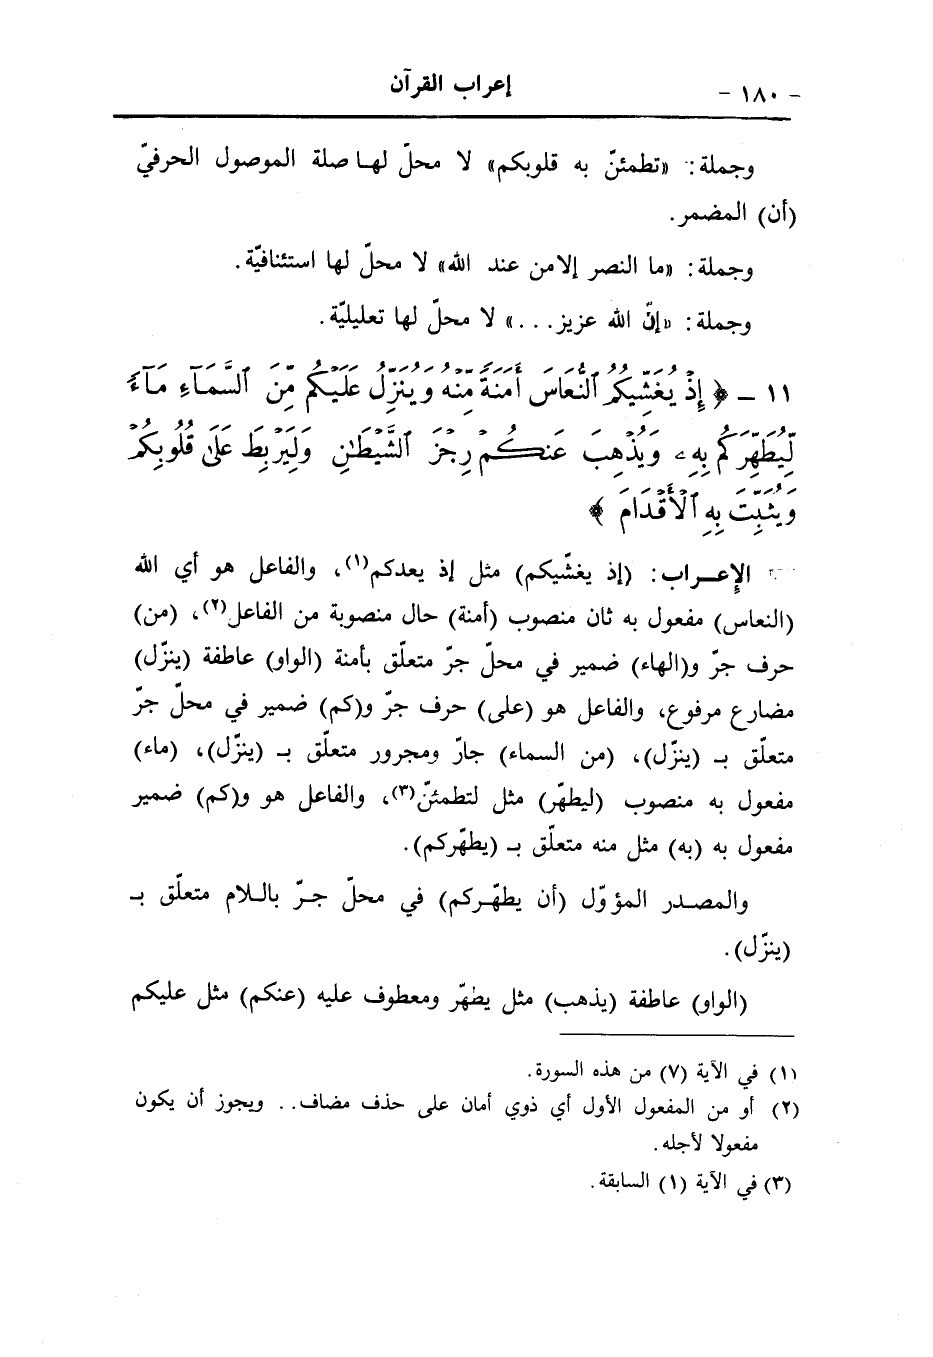 إعراب القرآن
- ١٨٠ -
وجملة: «تطمئنّ به قلوبكم» لا محلّ لها صلة الموصول الحرفيّ
(أن) المضمر.
وجملة: «ما النصر إلا من عند الله» لا محلّ لها استئنافيّة.
وجملة: «إنّ الله عزيز...» لا محلّ لها تعليليّة.
١١ - ﴿ إِذْ يُغَشِّيكُمُ ٱلنُّعَاسَ أَمَنَةً مِّنْهُ وَيُنَزِّلُ عَلَيْكُم مِّنَ ٱلسَّمَآءِ مَآءً
لِّيُطَهِّرَكُم بِهِۦ وَيُذْهِبَ عَنكُمْ رِجْزَ ٱلشَّيْطَـٰنِ وَلِيَرْبِطَ عَلَىٰ قُلُوبِكُمْ
وَيُثَبِّتَ بِهِ ٱلْأَقْدَامَ ﴾
الإعراب: (إذ يغشّيكم) مثل إذ يعدكم(١)، والفاعل هو أي الله
(النعاس) مفعول به ثان منصوب (أمنة) حال منصوبة من الفاعل(٢)، (من)
حرف جرّ و(الهاء) ضمير في محلّ جرّ متعلّق بأمنة (الواو) عاطفة (ينزّل)
مضارع مرفوع، والفاعل هو (على) حرف جرّ و(كم) ضمير في محلّ جرّ
متعلّق بـ (ينزّل)، (من السماء) جارّ ومجرور متعلّق بـ (ينزّل)، (ماء)
مفعول به منصوب (ليطهّر) مثل لتطمئنّ(٣)، والفاعل هو و(كم) ضمير
مفعول به (به) مثل منه متعلّق بـ (يطهّركم).
والمصدر المؤوّل (أن يطهّركم) في محلّ جرّ باللام متعلّق بـ
(ينزّل).
(الواو) عاطفة (يذهب) مثل يطهّر ومعطوف عليه (عنكم) مثل عليكم
(١) في الآية (٧) من هذه السورة.
(٢) أو من المفعول الأول أي ذوي أمان على حذف مضاف.. ويجوز أن يكون
مفعولا لأجله.
(٣) في الآية (١) السابقة.